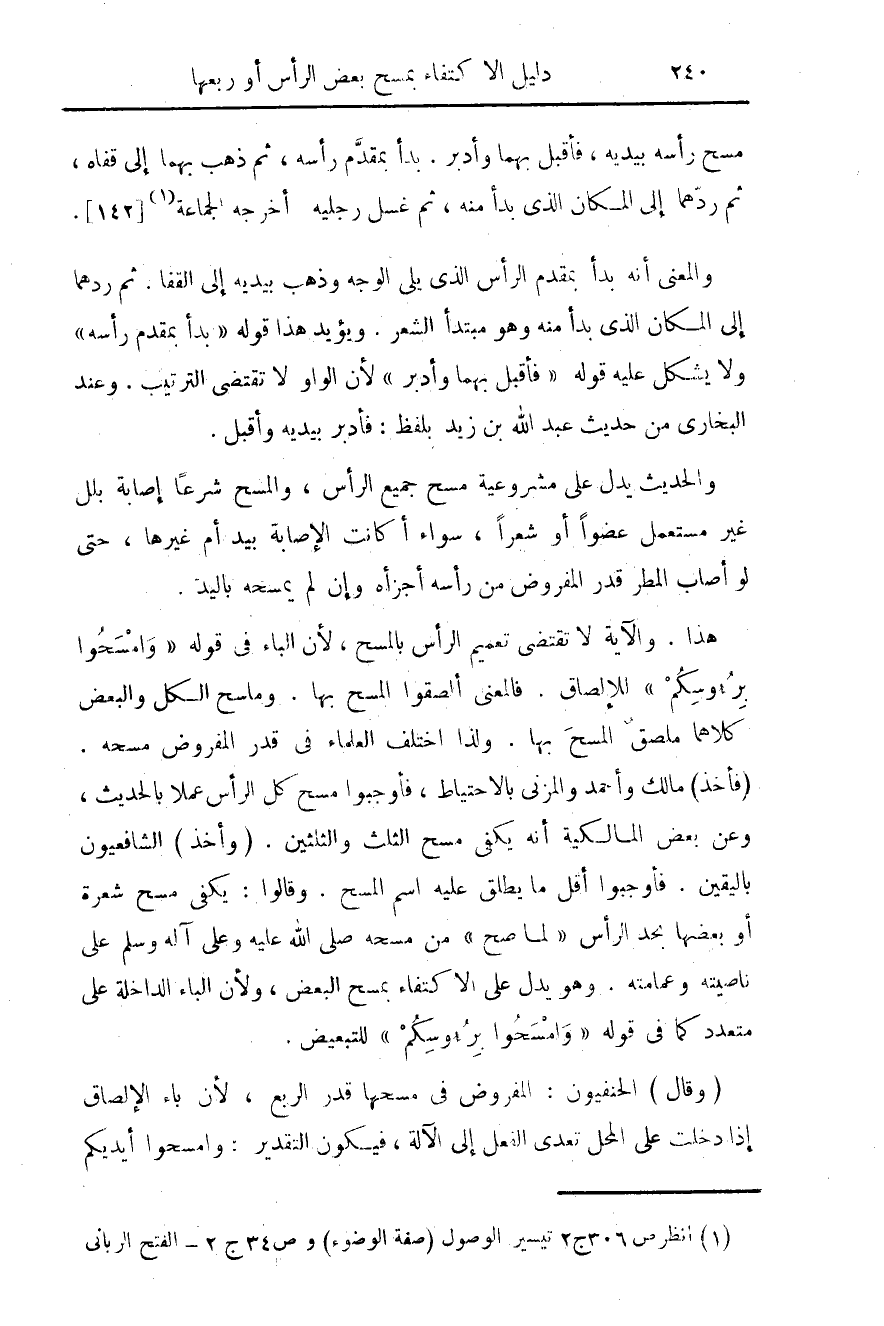 ٢٤٠ دليل الاكتفاء بمسح بعض الرأس أو ربعها
مسح رأسه بيديه ، فأقبل بهما وأدبر . بدأ بمقدَّم رأسه ، ثم ذهب بهما إلى قفاه ،
ثم ردّهما إلى المكان الذى بدأ منه ، ثم غسل رجليه أخرجه الجماعة(١) [١٤٢] .
والمعنى أنه بدأ بمقدم الرأس الذى يلى الوجه وذهب بيديه إلى القفا . ثم ردهما
إلى المكان الذى بدأ منه وهو مبتدأ الشعر . ويؤيد هذا قوله « بدأ بمقدم رأسه»
ولا يشكل عليه قوله « فأقبل بهما وأدبر » لأن الواو لا تقتضى الترتيب . وعند
البخارى من حديث عبد الله بن زيد بلفظ : فأدبر بيديه وأقبل .
والحديث يدل على مشروعية مسح جميع الرأس ، والمسح شرعًا إصابة بلل
غير مستعمل عضواً أو شعراً ، سواء أكانت الإصابة بيد أم غيرها ، حتى
لو أصاب المطر قدر المفروض من رأسه أجزأه وإن لم يمسحه باليد .
هذا . والآية لا تقتضى تعميم الرأس بالمسح ، لأن الباء فى قوله « وَامْسَحُوا
بِرُءوسِكُمْ » للإلصاق . فالمعنى ألصقوا المسح بها . وماسح الكل والبعض
كلاهما ملصقٌ المسحَ بها . ولذا اختلف العلماء فى قدر المفروض مسحه .
(فأخذ) مالك وأحمد والمزنى بالاحتياط ، فأوجبوا مسح كل الرأس عملا بالحديث ،
وعن بعض المالكية أنه يكفى مسح الثلث والثلثين . (وأخذ) الشافعيون
باليقين . فأوجبوا أقل ما يطلق عليه اسم المسح . وقالوا : يكفى مسح شعرة
أو بعضها بحد الرأس « لما صح » من مسحه صلى الله عليه وعلى آله وسلم على
ناصيته وعمامته . وهو يدل على الاكتفاء بمسح البعض ، ولأن الباء الداخلة على
متعدد كما فى قوله « وَامْسَحُوا بِرُءوسِكُمْ » للتبعيض .
(وقال) الحنفيون : المفروض فى مسحها قدر الربع ، لأن باء الإلصاق
إذا دخلت على المحل تعدى الفعل إلى الآلة ، فيكون التقدير : وامسحوا أيديكم
(١) انظر ص ٣٠٦ج٢ تيسير الوصول (صفة الوضوء) و ص٣٤ ج ٢ ــ الفتح الربانى